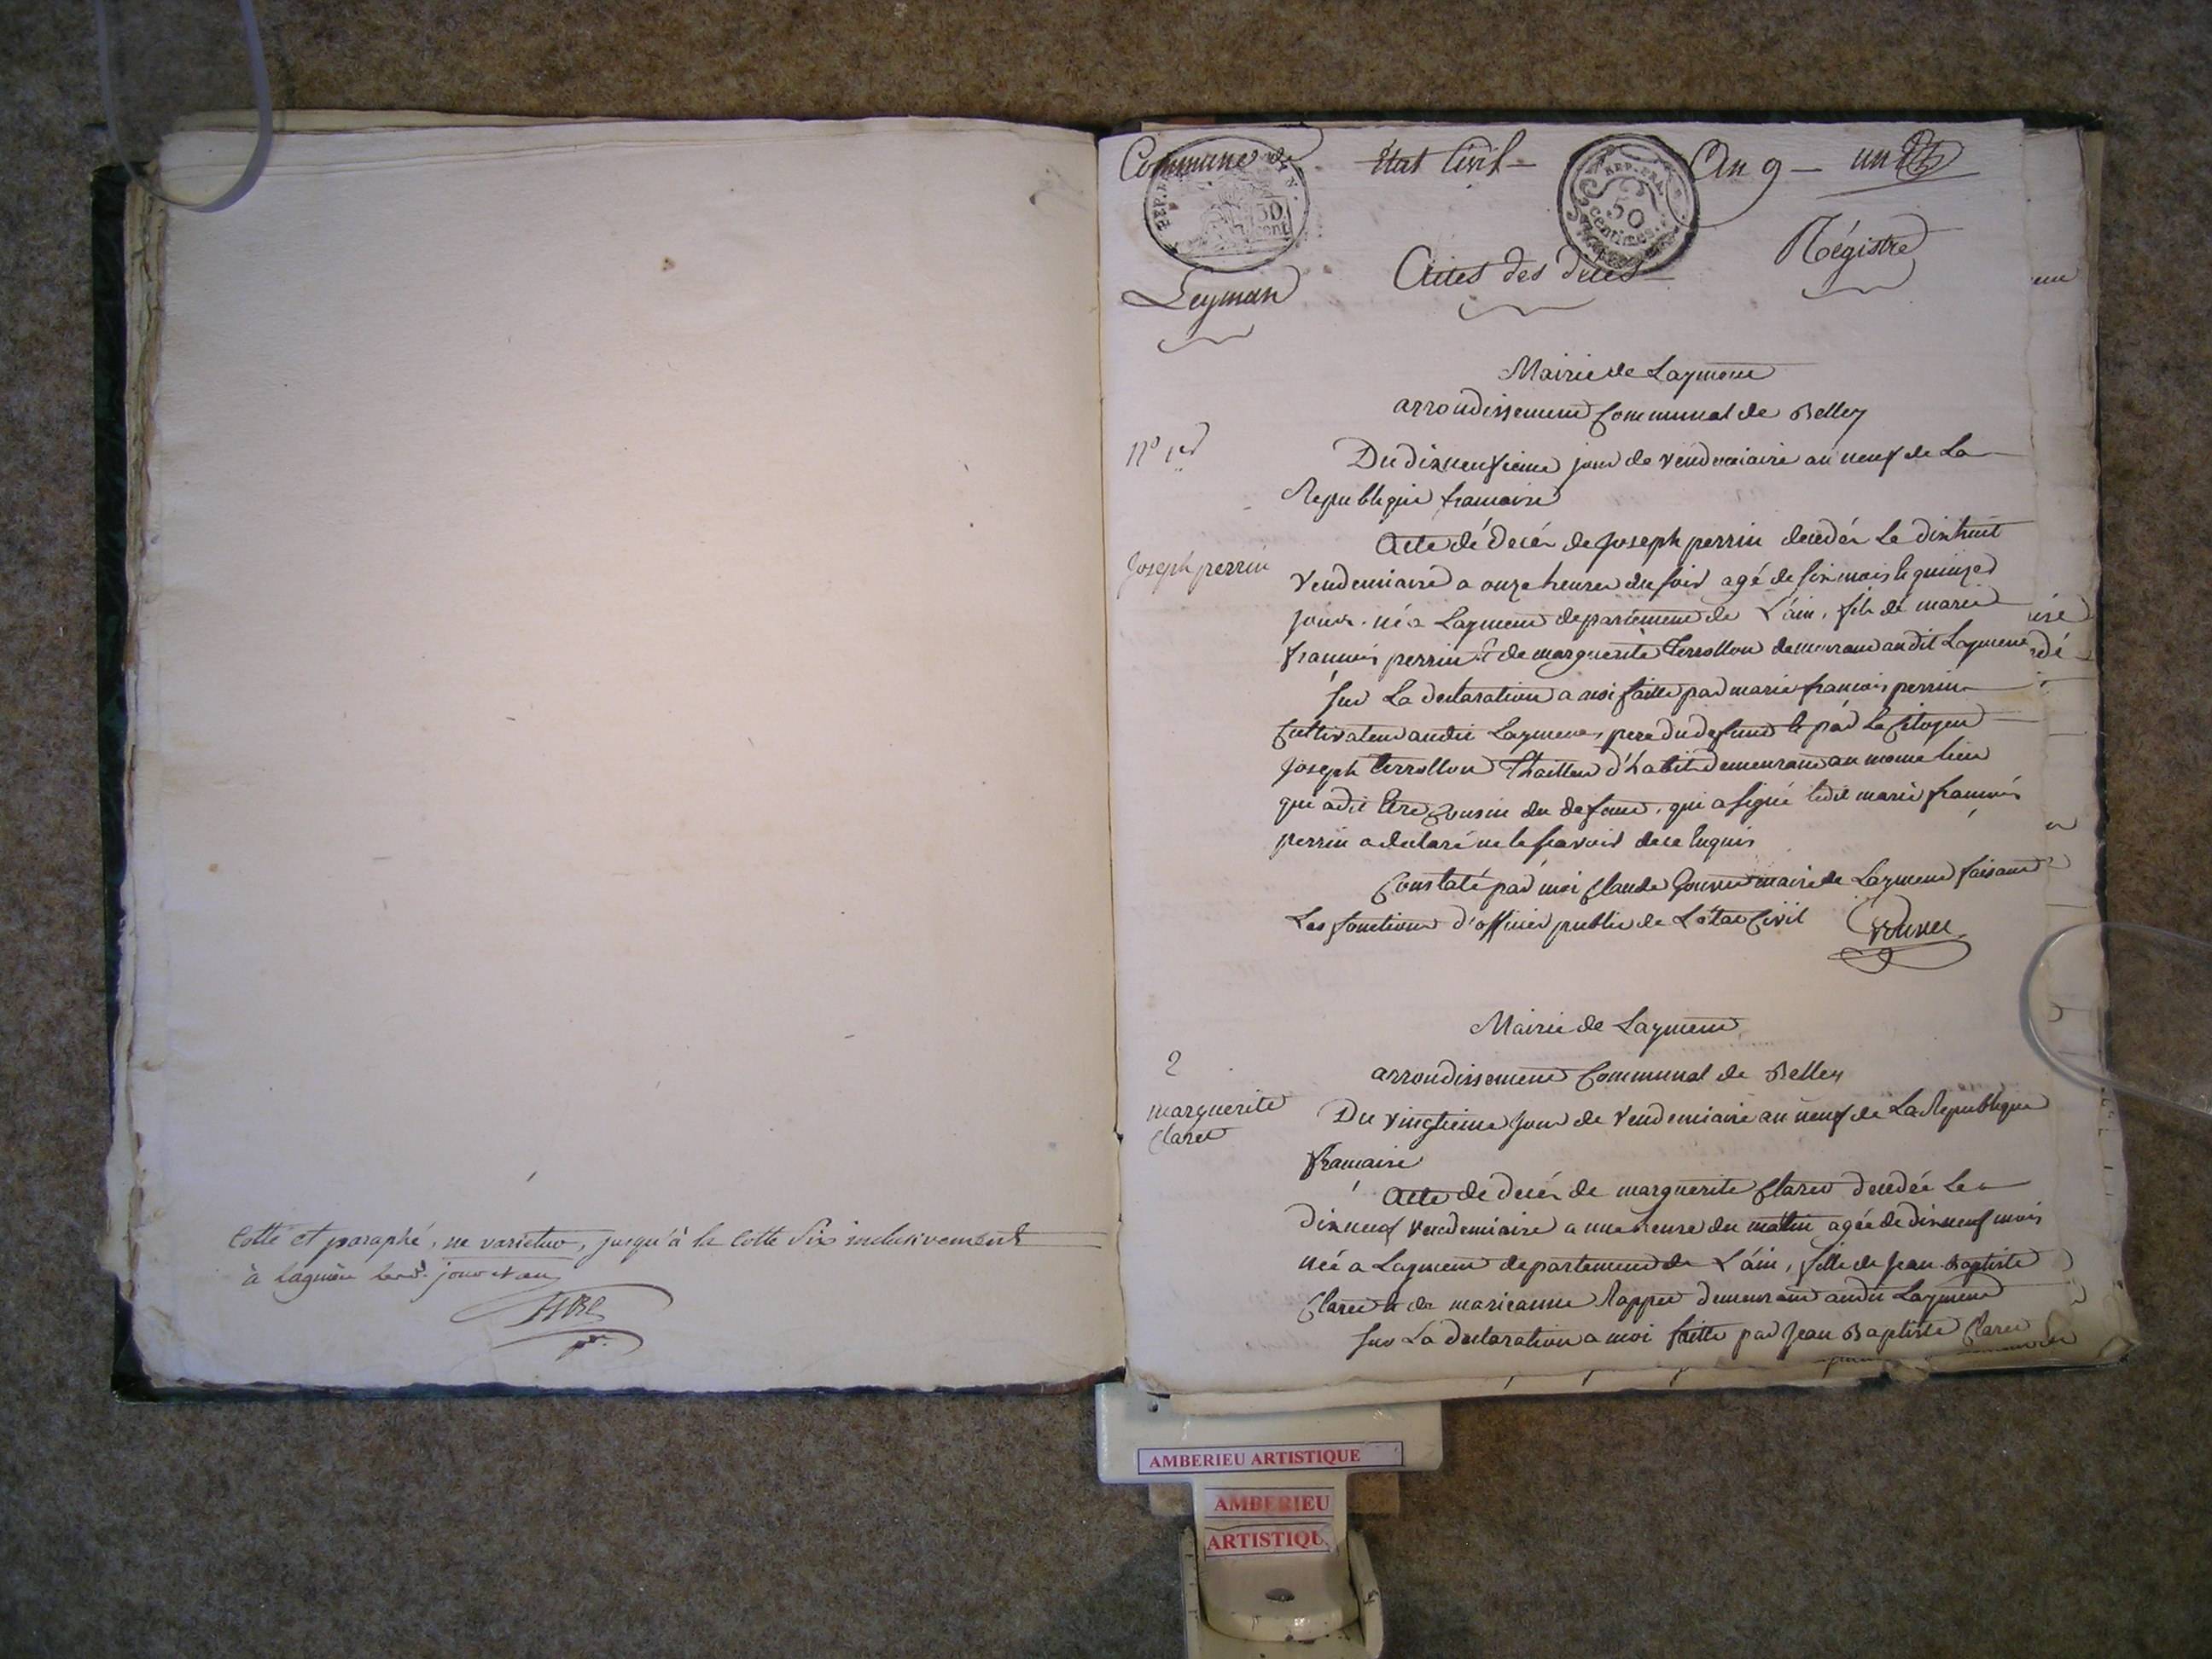 Cotté et paraphé, ne varietur, jusqu'à la Cotte Six inclusivement
à Lagnieu jour et an
Commune de
Etat Civil
REP. FRA.
50
centimes
An 9 — un
Régistre
Actes des décés
Leyman
Mairie de Laymene
arrondissement Communal de Belley
N° 1er
Du dixneuvieme jour de vendemiaire an neuf de La
Republique francaise
Joseph perrin
Acte dé Decés de Joseph perrin decedés Le dixhuit
Vendemiaire a onze heures du soir agé de six mois & quinze
jours. né a Laymene departement de L'ain, fils de marie
francois perrin & de marguerite terrollon demeurans audit Laymene
Sur La declaration a moi faitte par marie francois perrin
Cultivateur audit Laymene, pere du defunt & par Le Citoyen
Joseph terrollon thailleur d'habit demeurant au meme lieu
qui a dit Etre Cousin du defunt, qui a signé ledit marie francois
perrin a declaré ne le scavoir de ce Enquis
Constaté par moi Claude Gouvet maire de Laymene faisant
Les fonctions d'officier public de L'état Civil
Gouvet
Mairie de Laymene
2
arrondissement Communal de Belley
marguerite
Claret
Du vingtieme Jour de Vendemiaire an neuf de La Republique
francaise
Acte de decés de marguerite Claret decedée Le
dixneuf vendemiaire a une heure du matin agée de dixneuf mois
née a Laymene departement de L'ain, fille de Jean Baptiste
Claret & de marieanne Rappet demeurans audit Laymene
Sur La declaration a moi faitte par Jean Baptiste Claret
AMBERIEU ARTISTIQUE
AMBERIEU
ARTISTIQU